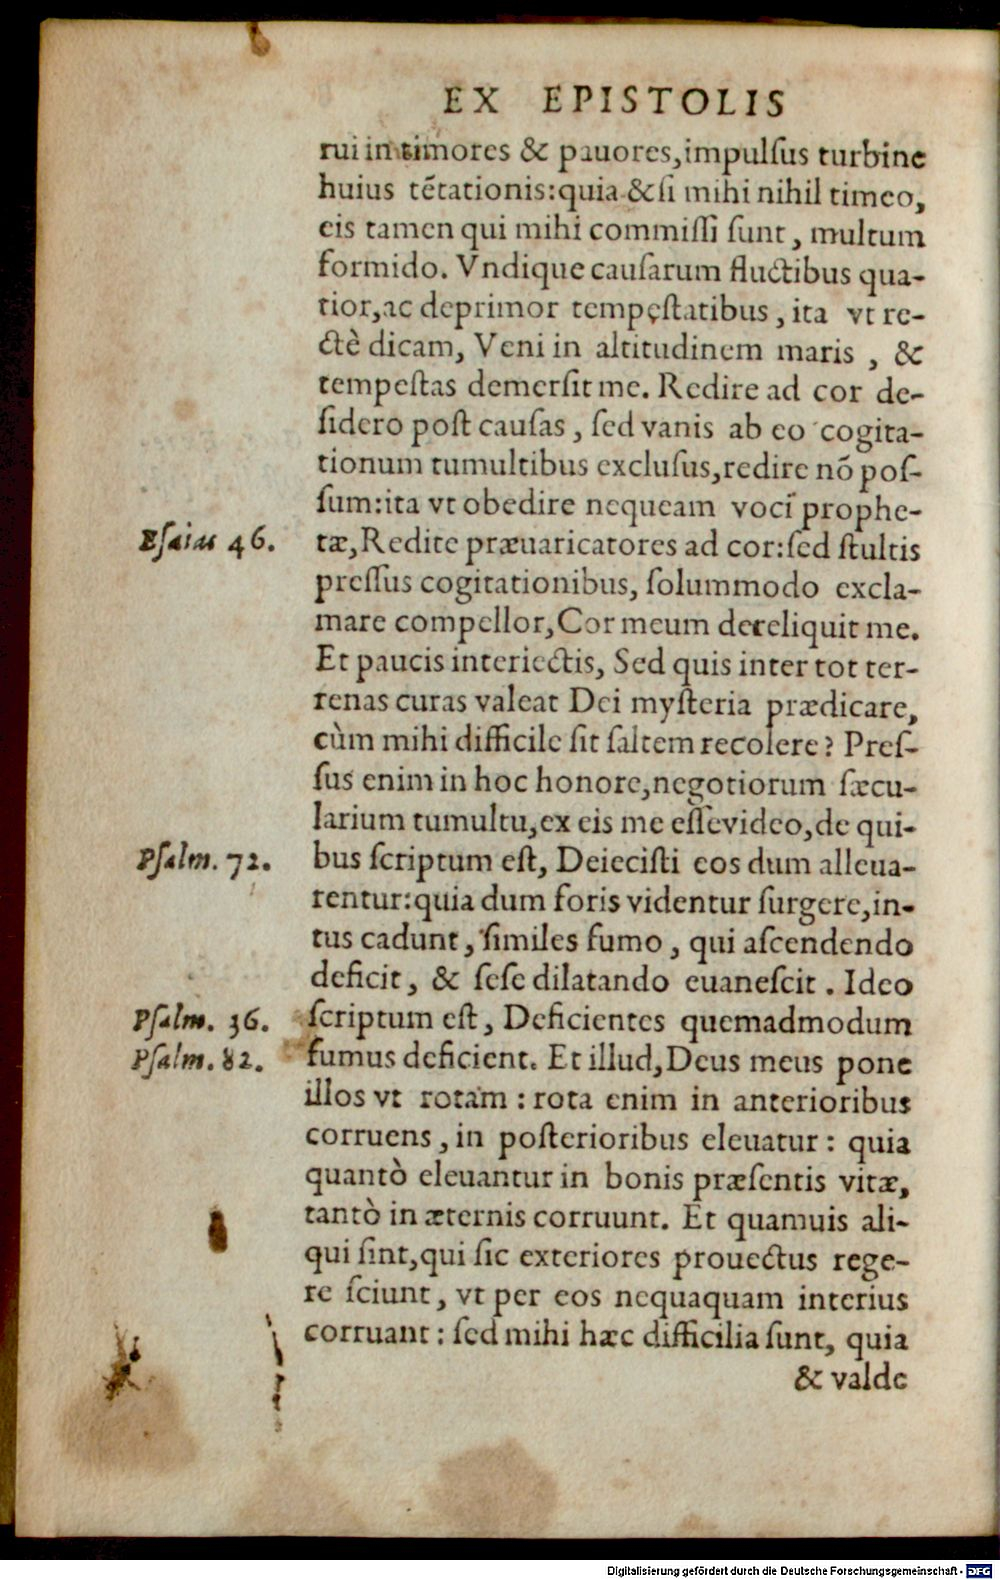 EX EPISTOLIS
rui in timores & pauores,impulſus turbine
huius tẽtationis:quia & ſi mihi nihil timeo,
eis tamen qui mihi commiſſi ſunt, multum
formido. Vndique cauſarum fluctibus qua-
tior,ac deprimor tempęſtatibus, ita vt re-
ctè dicam, Veni in altitudinem maris, &
tempeſtas demerſit me. Redire ad cor de-
ſidero poſt cauſas, ſed vanis ab eo cogita-
tionum tumultibus excluſus,redire nõ poſ-
ſum:ita vt obedire nequeam voci prophe-
Eſaias 46.
tæ,Redite præuaricatores ad cor:ſed ſtultis
preſſus cogitationibus, ſolummodo excla-
mare compellor,Cor meum dereliquit me.
Et paucis interiectis, Sed quis inter tot ter-
renas curas valeat Dei myſteria prædicare,
cùm mihi difficile ſit ſaltem recolere? Preſ-
ſus enim in hoc honore,negotiorum ſæcu-
larium tumultu,ex eis me eſſe video,de qui-
Pſalm. 72.
bus ſcriptum eſt, Deieciſti eos dum alleua-
rentur:quia dum foris videntur ſurgere,in-
tus cadunt, ſimiles fumo, qui aſcendendo
deficit, & ſeſe dilatando euaneſcit. Ideo
Pſalm. 36.
ſcriptum eſt, Deficientes quemadmodum
Pſalm. 82.
fumus deficient. Et illud,Deus meus pone
illos vt rotam: rota enim in anterioribus
corruens, in poſterioribus eleuatur: quia
quantò eleuantur in bonis præſentis vitæ,
tantò in æternis corruunt. Et quamuis ali-
qui ſint,qui ſic exteriores prouectus rege-
re ſciunt, vt per eos nequaquam interius
corruant: ſed mihi hæc difficilia ſunt, quia
& valde
Digitalisierung gefördert durch die Deutsche Forschungsgemeinschaft - DFG